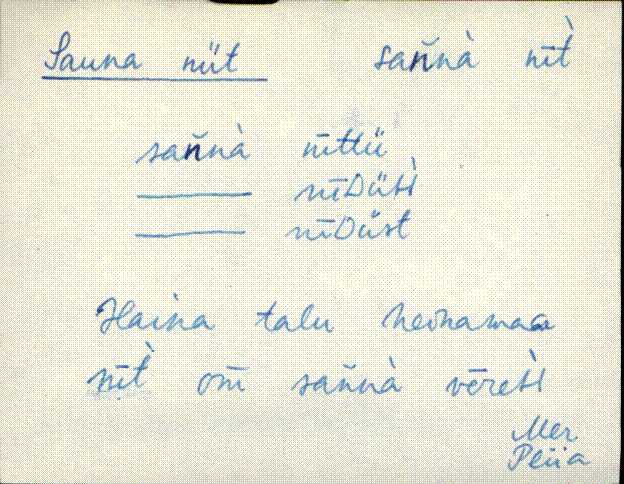 Sauna niit san̆nà nīt̀
san̆nà nīttü
nīDüst̀
nīDüst
Haina talu heinamaa
nīt̀ om̄ san̆nà vēret̀
Mer
Peiia